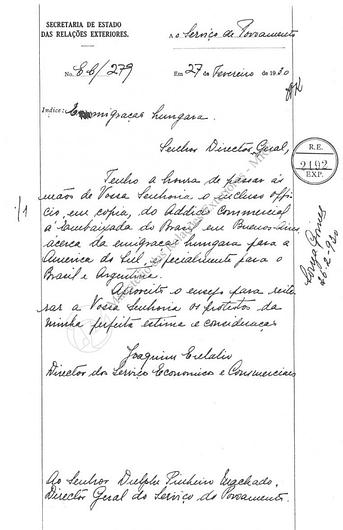 SECRETARIA DE ESTADO
DAS RELAÇÕES EXTERIORES.
Ao Serviço de Povoamento
No. EC/279
Em 27 de Fevereiro de 1930
Indice: Emigração hungara.
Senhor Director Geral,
R.E.
2192
EXP.
Tenho a honra de passar ás
mãos de Vossa Senhoria o incluso offi-
1/1
cio, em copia, do Addido Commercial
á Embaixada do Brasil em Buenos Aires
acerca da emigração hungara para a
America do Sul, especialmente para o
Brasil e Argentina.
Aproveito o ensejo para reite-
rar a Vossa Senhoria os protestos da
minha perfeita estima e consideração
Joaquim Eulalio
Director dos Serviços Economicos e Commerciaes
Ao Senhor Dulphe Pinheiro Machado,
Director Geral do Serviço do Povoamento.